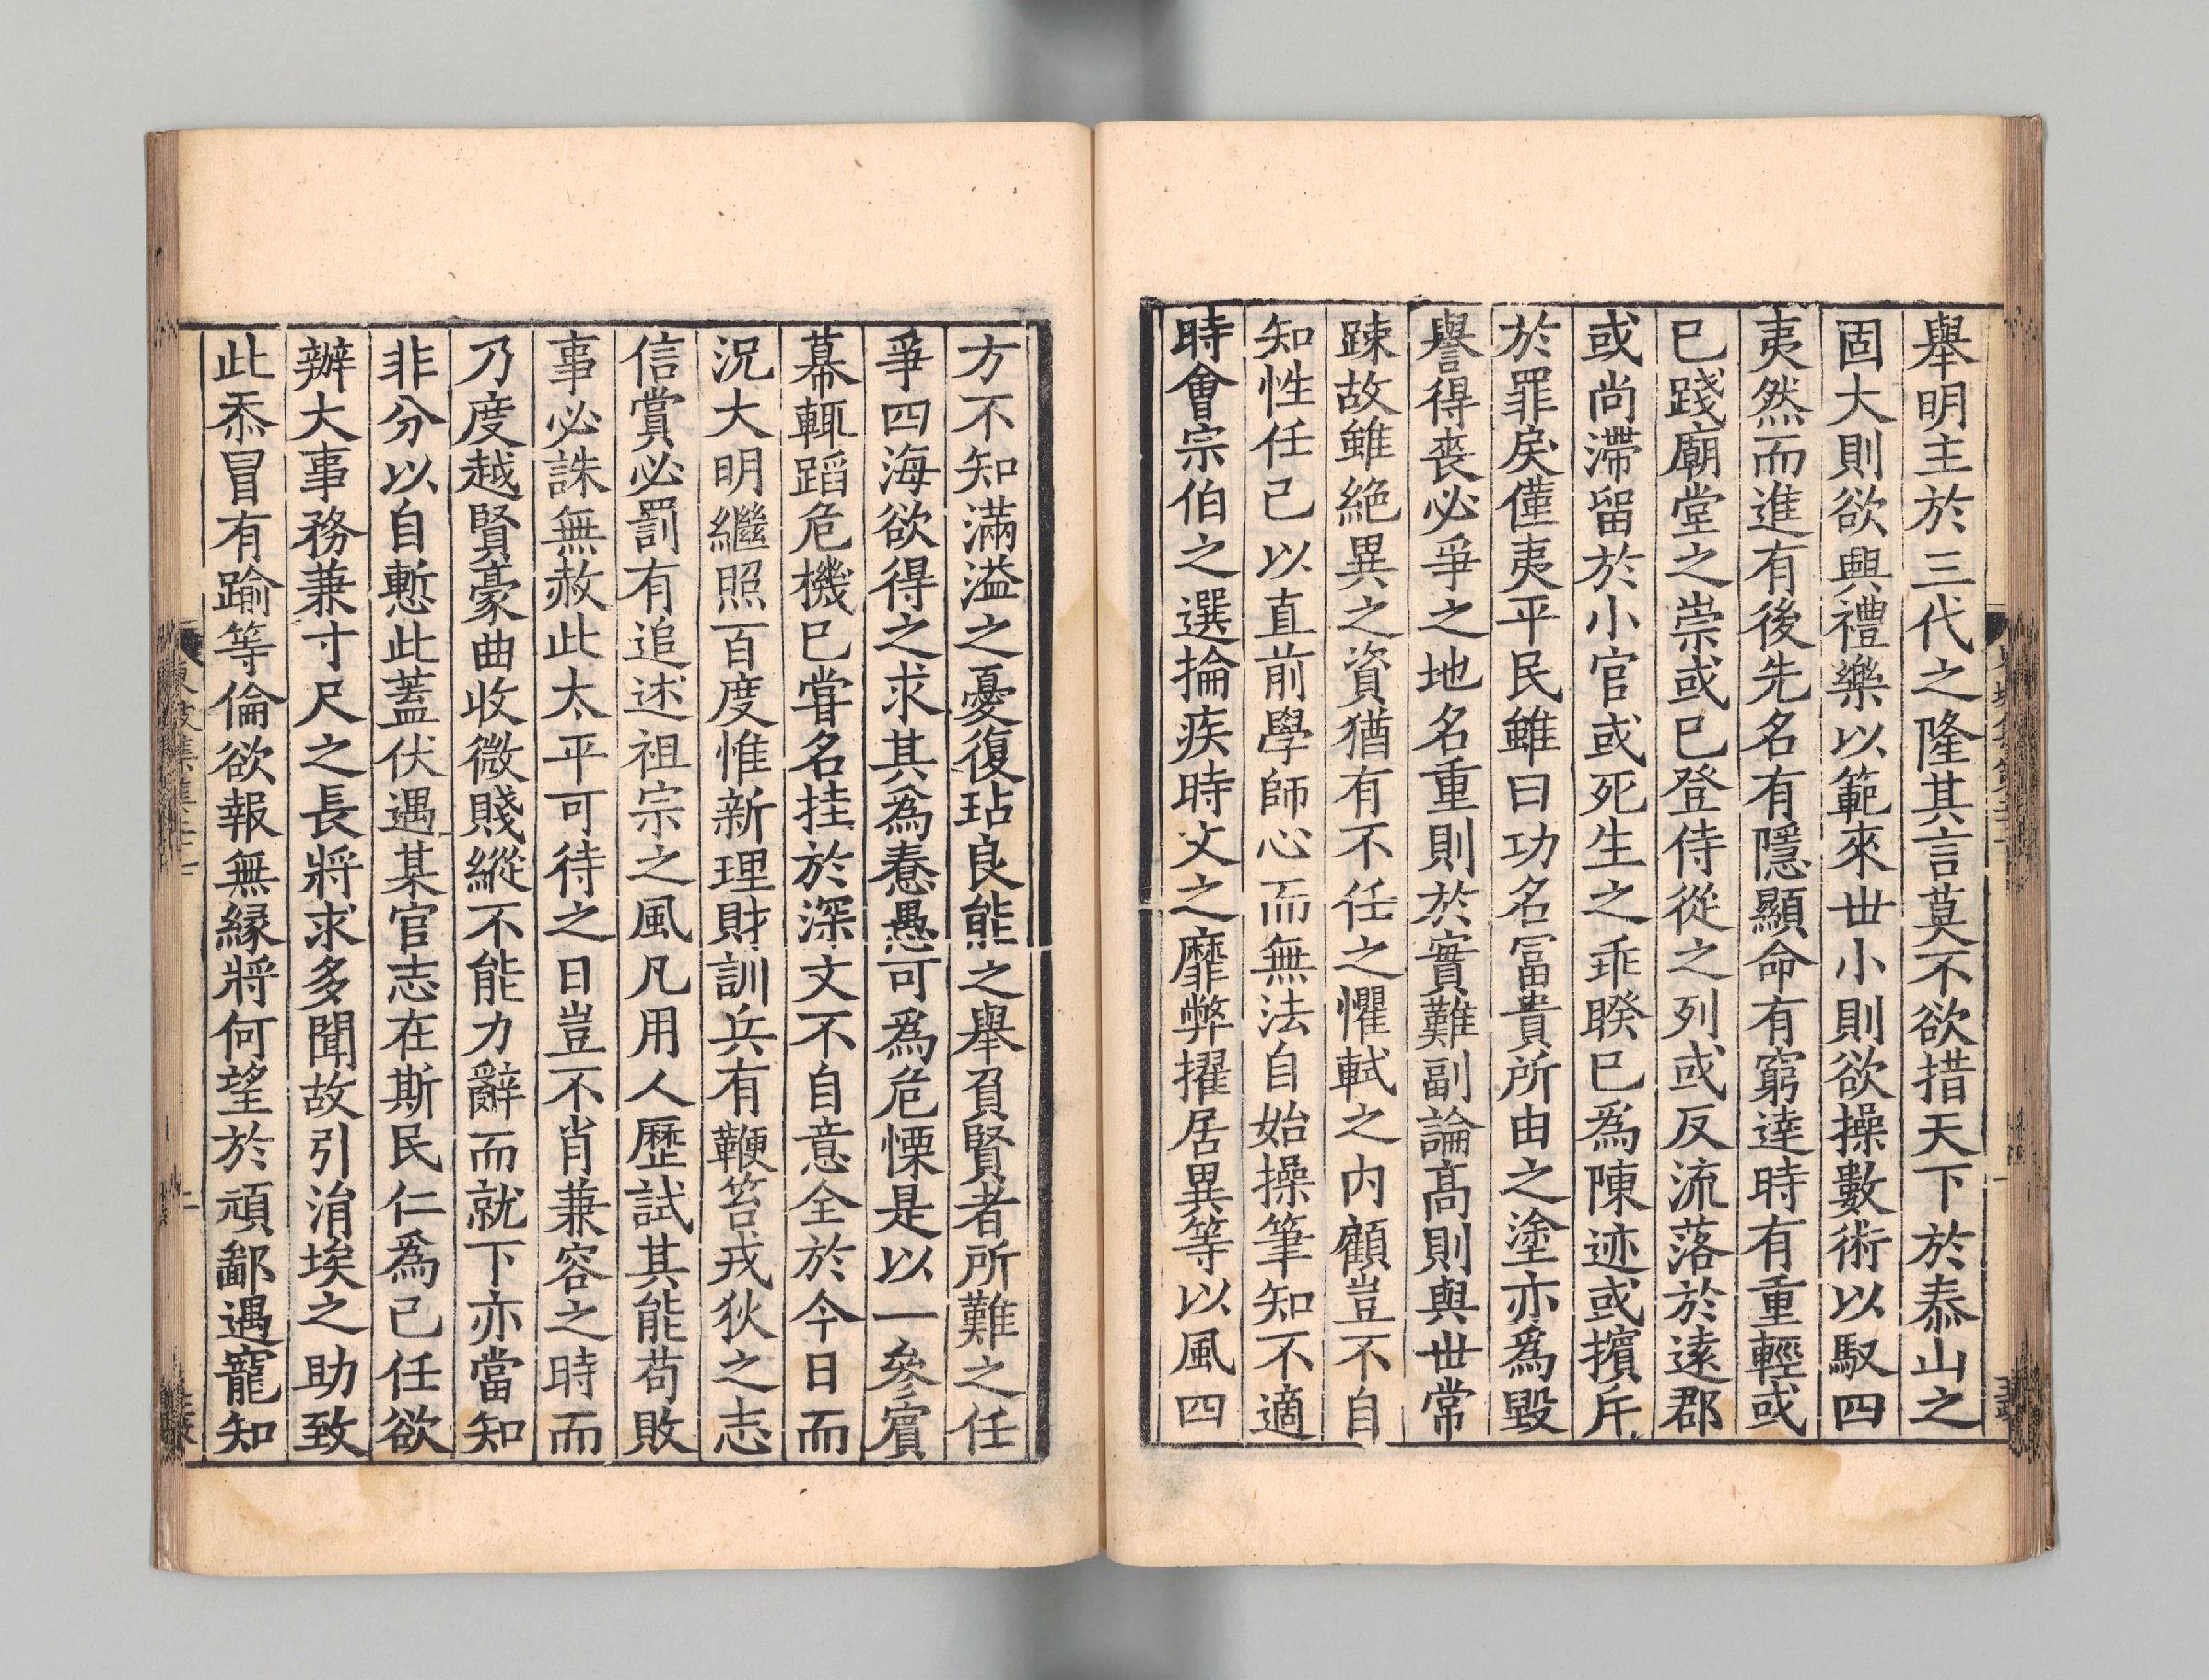 舉明主於三代之隆其言莫不欲措天下於泰山之
固大則欲興禮樂以範來世小則欲操數術以馭四
夷然而進有後先名有隱顯命有窮達時有重輕或
已踐廟堂之崇或已登侍從之列或反流落於遠郡
或尚滯留於小官或死生之乖暌已為陳迹或擯斥
於罪戾僅夷平民雖曰功名冨貴所由之塗亦為毀
譽得喪必爭之地名重則於實難副論髙則與世常
踈故雖絕異之資猶有不任之懼軾之内顧豈不自
知性任己以直前學師心而無法自始操筆知不適
時會宗伯之選掄疾時文之靡弊擢居異等以風四
方不知滿溢之憂復玷良能之舉負賢者所難之任
爭四海欲得之求其為惷愚可為危慄是以一參賓
幕輒蹈危機已甞名挂於深文不自意全於今日而
況大明繼照百度惟新理財訓兵有鞭笞戎狄之志
信賞必罰有追述祖宗之風凡用人歷試其能苟敗
事必誅無赦此太平可待之日豈不肖兼容之時而
乃度越賢豪曲收微賤縱不能力辭而就下亦當知
非分以自慙此蓋伏遇某官志在斯民仁為己任欲
辦大事務兼寸尺之長將求多聞故引涓埃之助致
此忝冒有踰等倫欲報無縁將何望於頑鄙遇寵知
東坡集